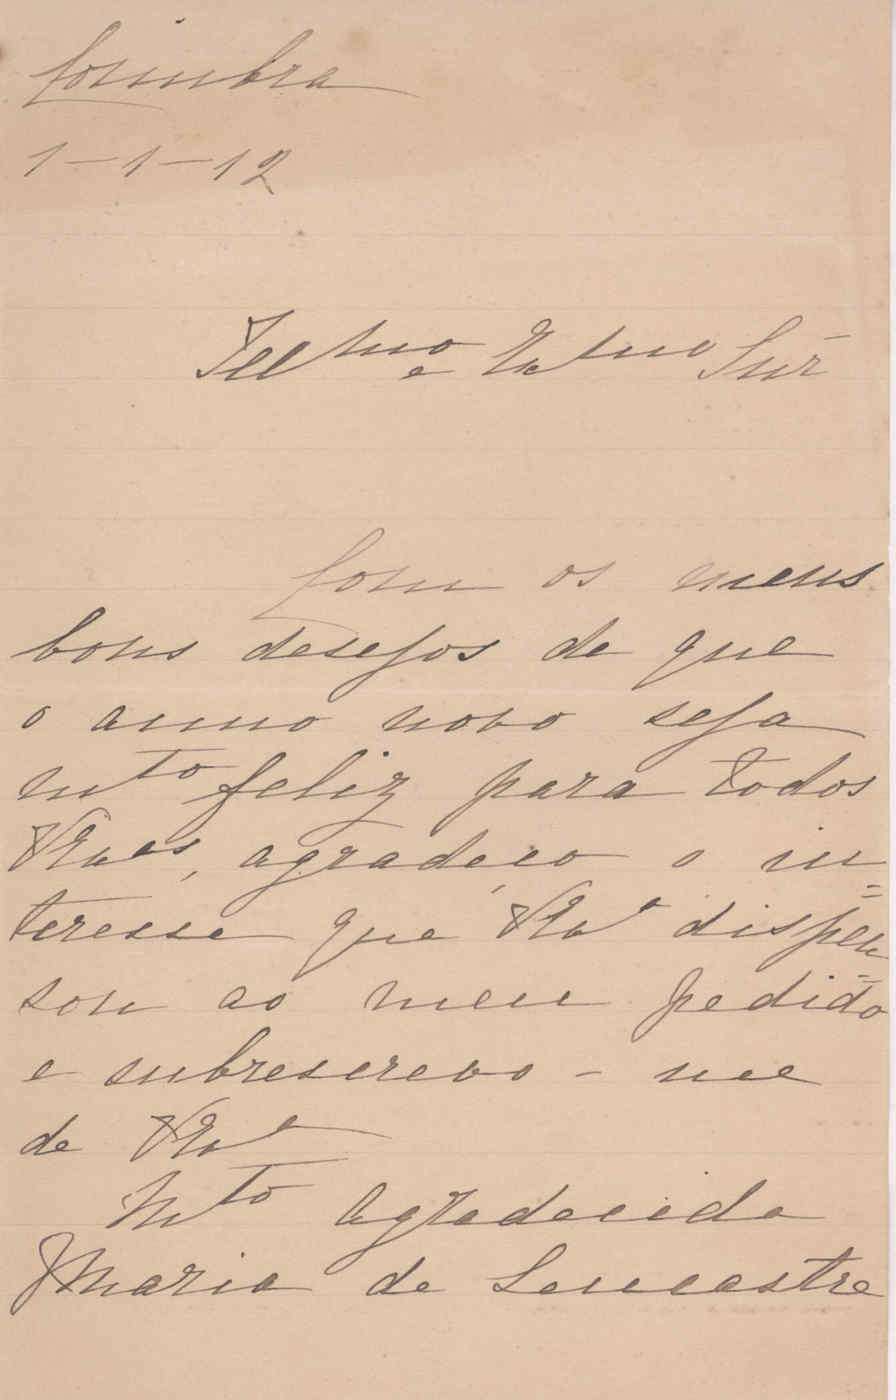 Coimbra
1-1-12
Illmo e Exmo Snr
Com os meus
bons desejos de que
o anno novo seja
mto feliz para todos
VExces, agradeço o in=
teresse que VExa dispen=
sou ao meu pedido
e subrescrevo-me
de VExa
Mto Agradecida
Maria de Lencastre